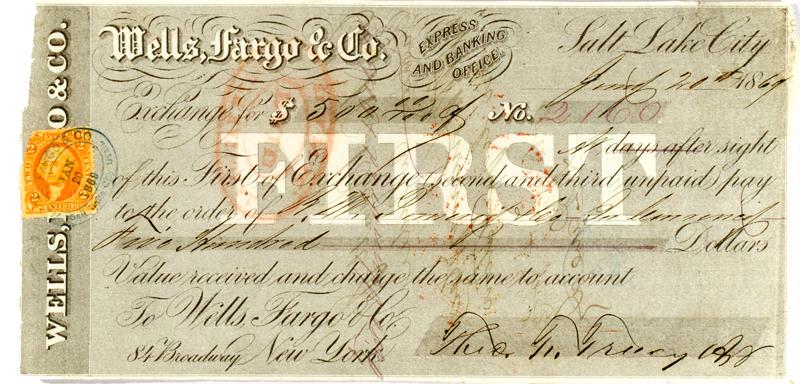 Wells, Fargo & Co.
EXPRESS
AND BANKING
OFFICE.
Salt Lake City
20th 1869
Exchange for $ 500 No. 2160
FIRST
At days after sight
of this First of Exchange (second and third unpaid) pay
to the order of
Five Hundred Dollars
Value received and charge the same to account
To Wells, Fargo & Co.
84 Broadway New York.
Theo. F. Tracy Agt
WELLS, O & CO.
JAN
20
1869